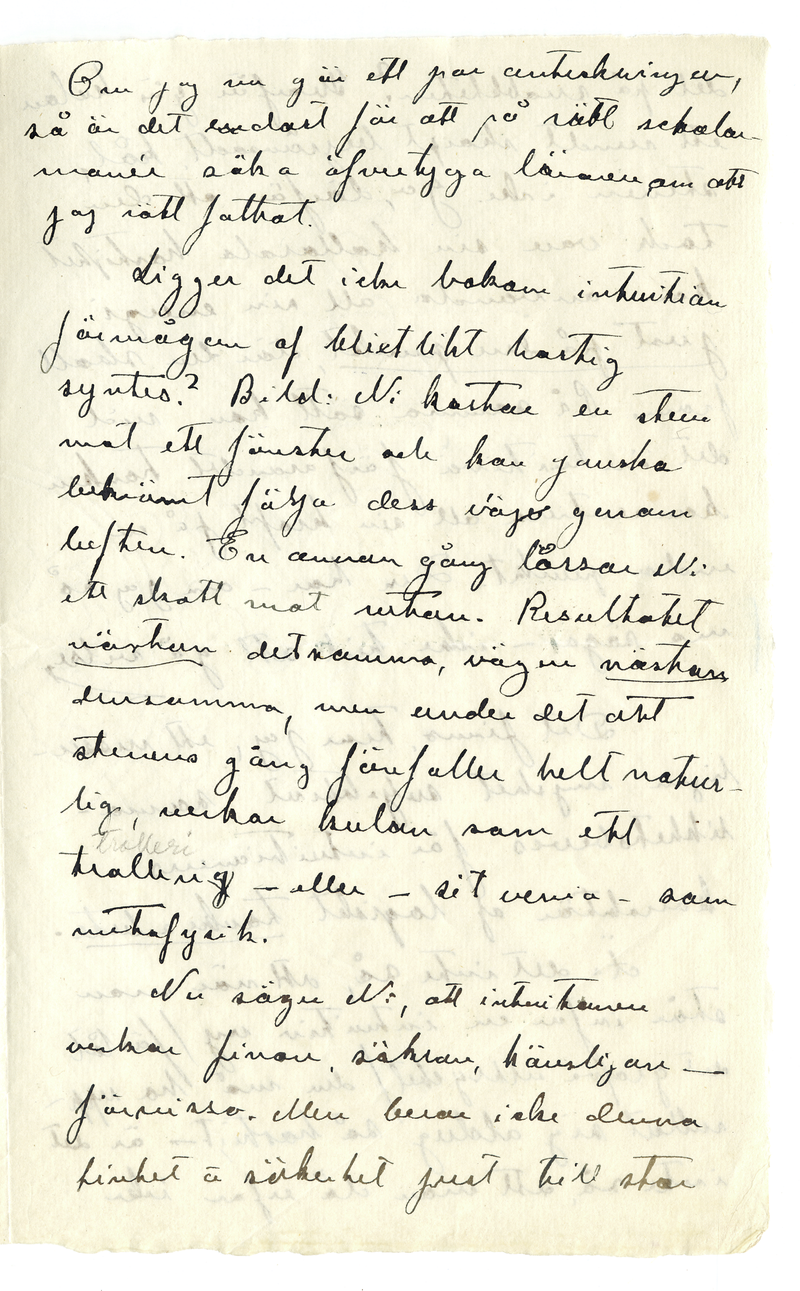 Om jag nu gör ett par anteckningar,
så är det endast för att på rätt scholar-
manér söka öfvertyga läraren om att
jag rätt fattat.
Ligger det icke bakom intuition
förmågan af blixtlikt hastig
syntes? Bild: Ni kastar en sten
mot ett fönster och kan ganska
bekvämt följa dess väg genom
luften. En annan gång lossar Ni
ett skott mot rutan. Resultatet
nästan detsamma, vägen nästan
densamma, men under det att
stenens gång förefaller helt natur-
lig, verkar kulan som ett
trolleri
trolleri – eller – sit venia – som
metafysik.
Nu säger Ni, att intuitionen
verkar finare, säkrare, känsligare —
förvisso. Men beror icke denna
finhet o säkerhet just till stor